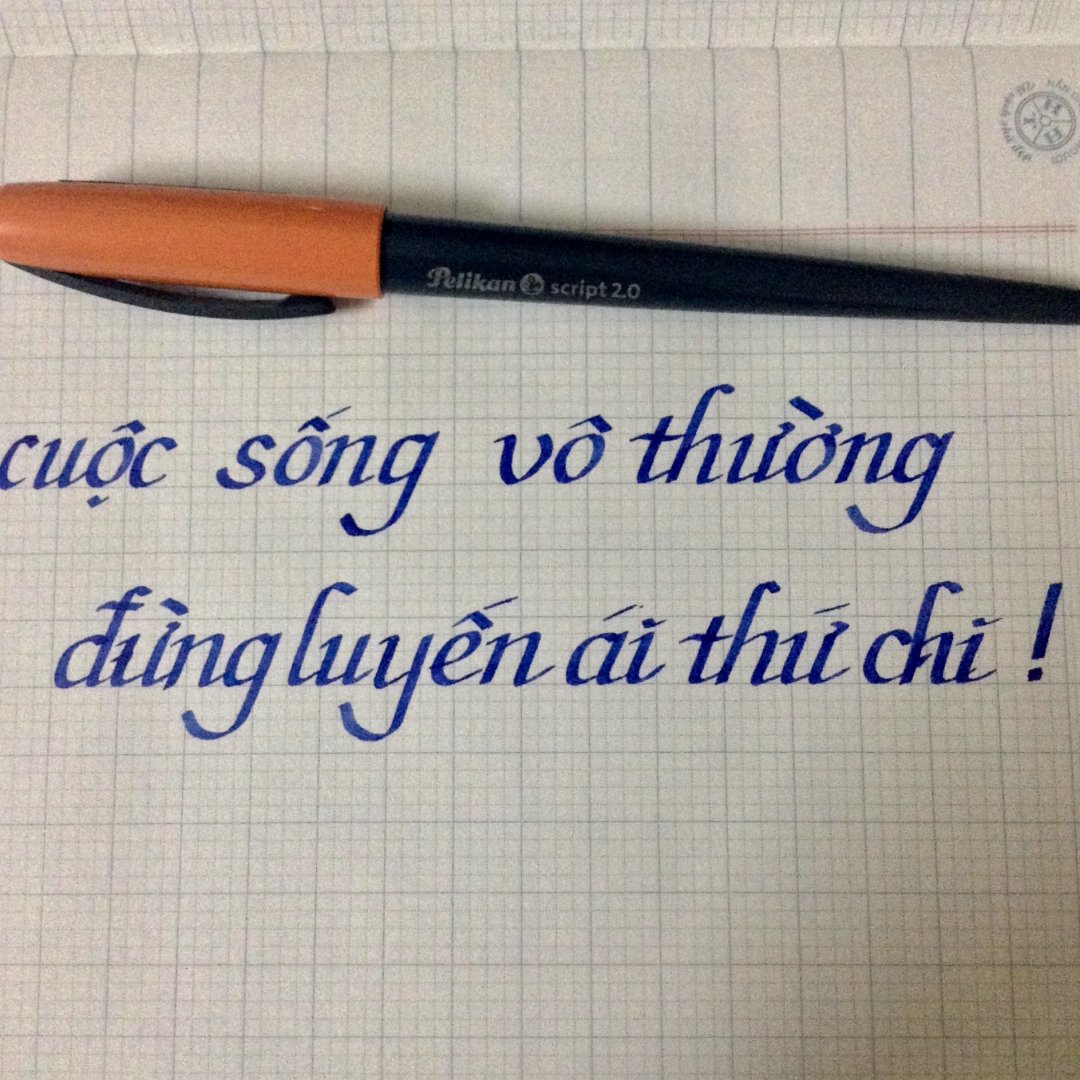 Pelikan script 2.0
cuộc sống vô thường
đừng luyến ái thứ chi !